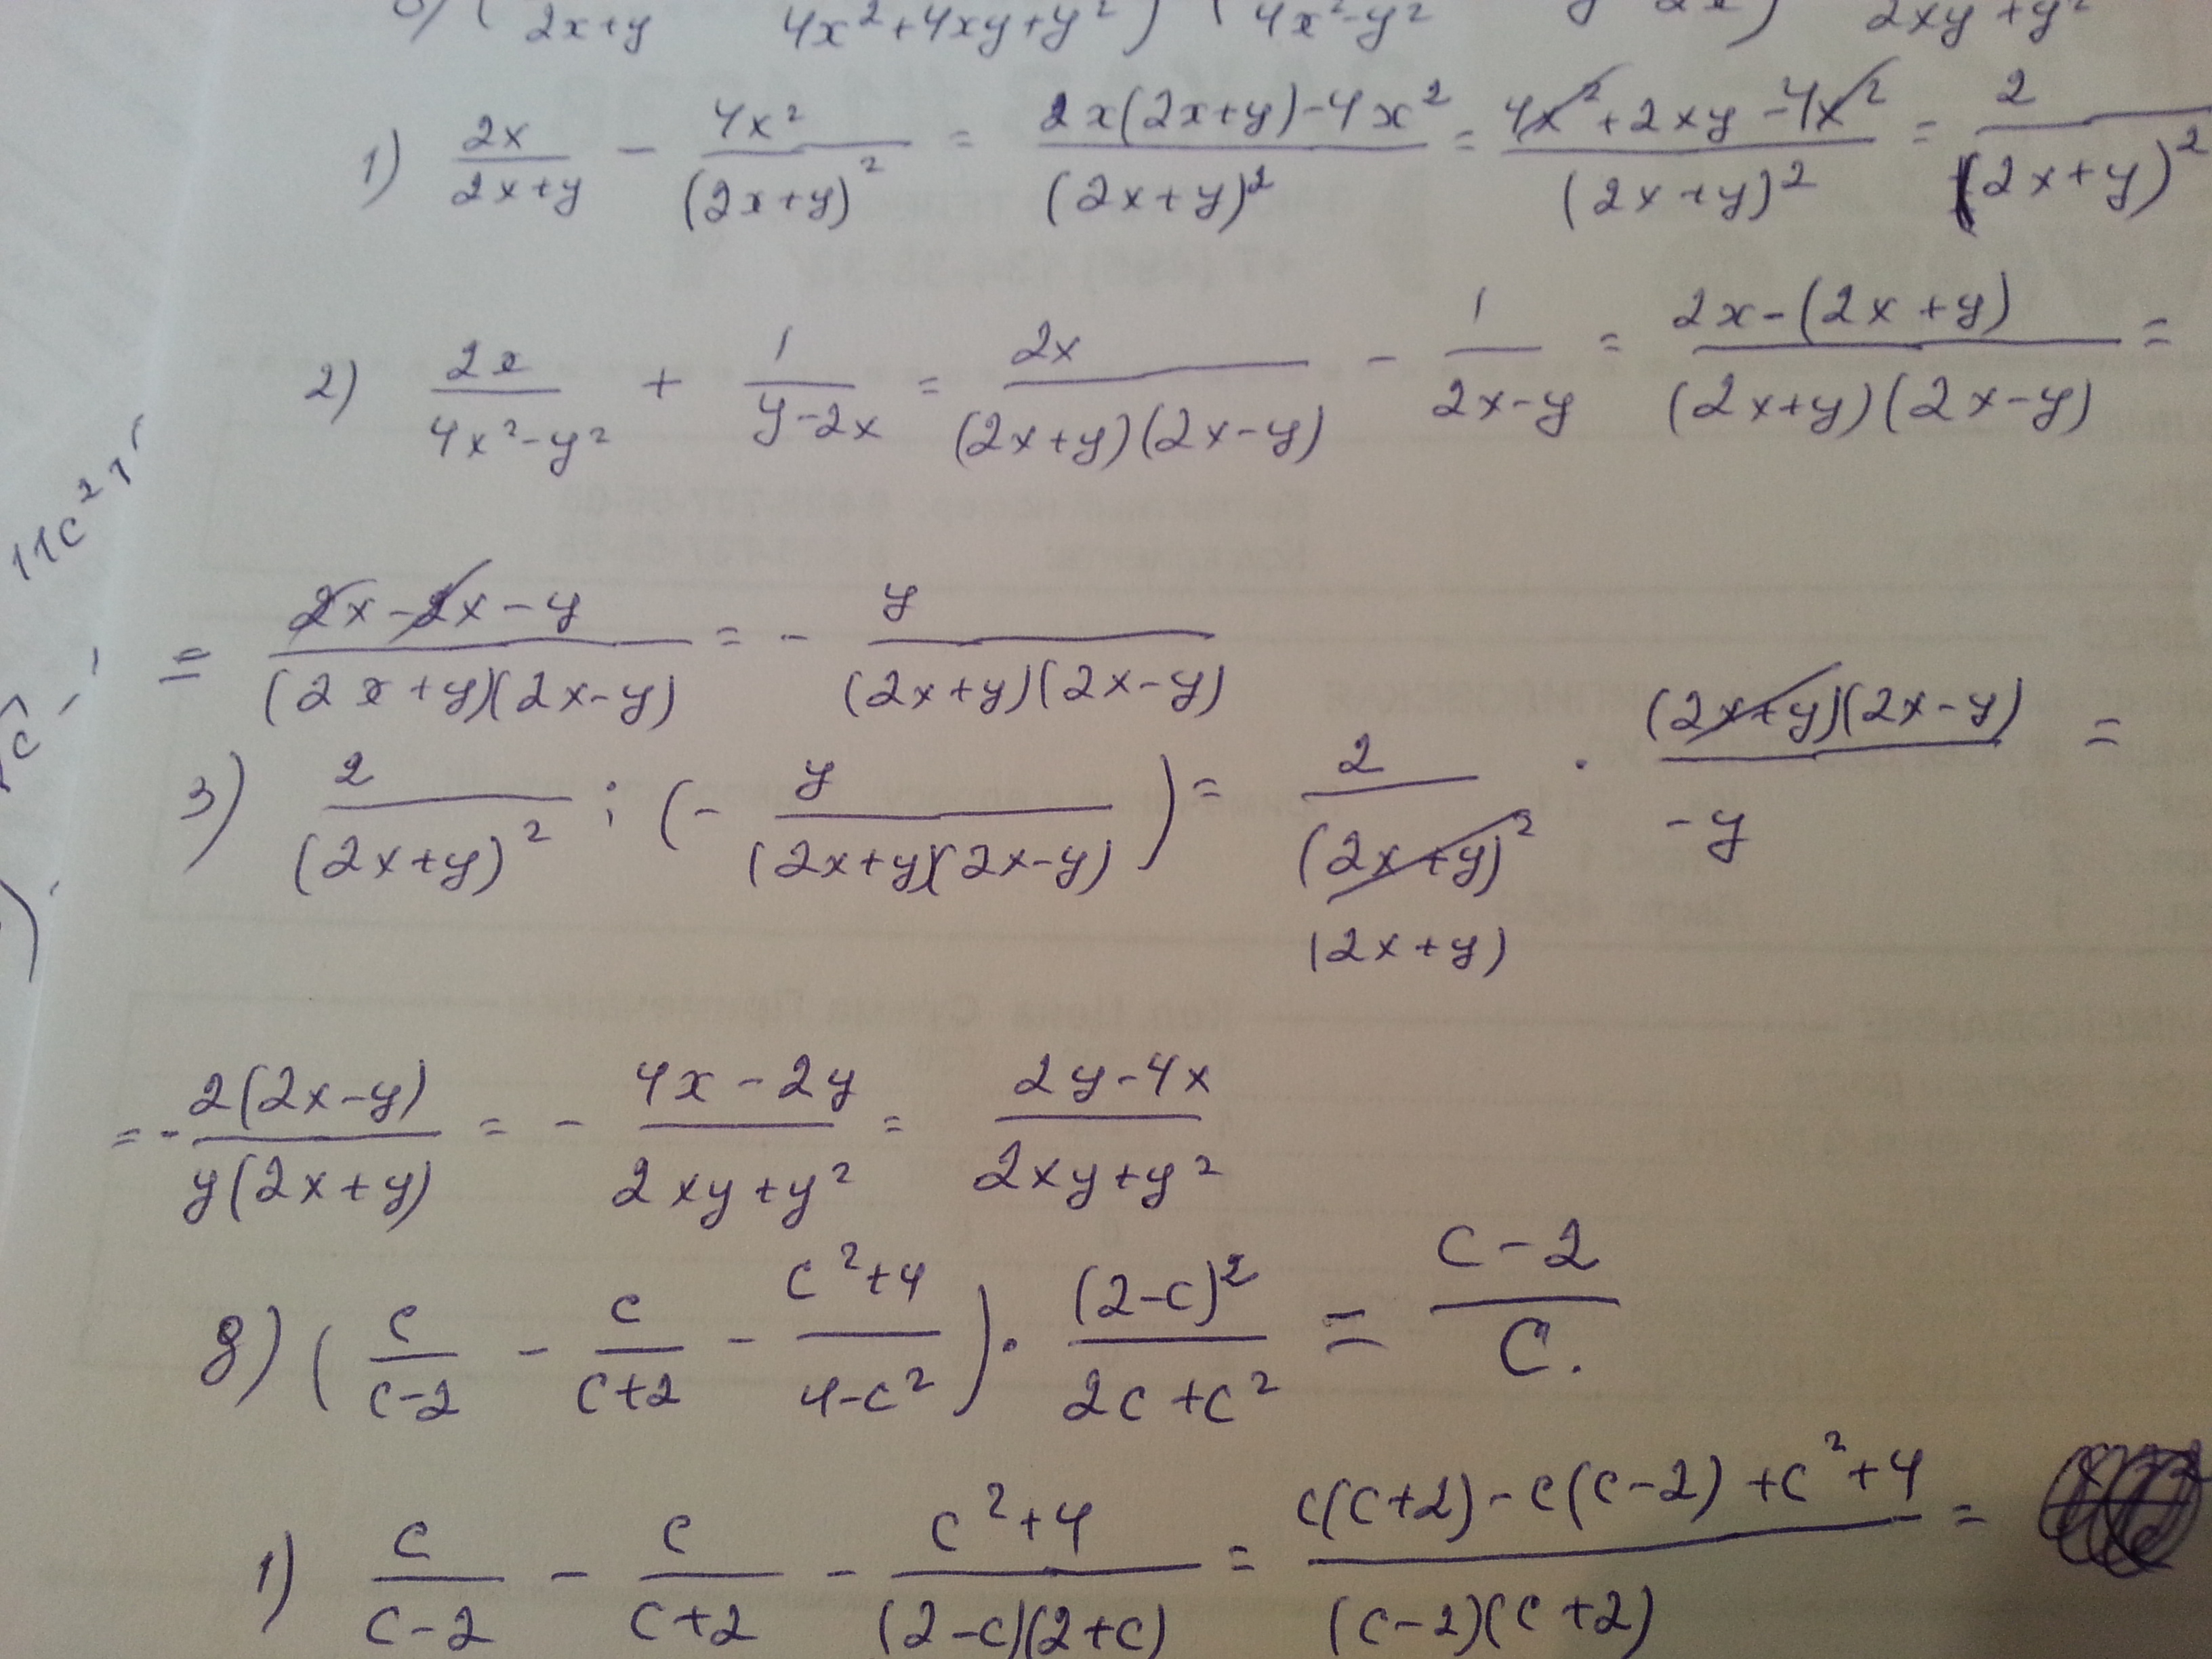 2x+y 4x²+4xy+y² ) ( 4x²-y² 2xy+y²
1) 2x/(2x+y) - 4x²/(2x+y)² = (2x(2x+y)-4x²)/(2x+y)² = (4x²+2xy-4x²)/(2x+y)² = 2/(2x+y)²
2) 2x/(4x²-y²) + 1/(y-2x) = 2x/((2x+y)(2x-y)) - 1/(2x-y) = (2x-(2x+y))/((2x+y)(2x-y)) =
11c²
= (2x-2x-y)/((2x+y)(2x-y)) = - y/((2x+y)(2x-y))
3) 2/(2x+y)² : (- y/((2x+y)(2x-y))) = 2/(2x+y)² · ((2x+y)(2x-y))/(-y) =
(2x+y)
= - 2(2x-y)/(y(2x+y)) = - (4x-2y)/(2xy+y²) = (2y-4x)/(2xy+y²)
8) (c/(c-2) - c/(c+2) - (c²+4)/(4-c²)) · (2-c)²/(2c+c²) = (c-2)/c.
1) c/(c-2) - c/(c+2) - (c²+4)/((2-c)(2+c)) = (c(c+2)-c(c-2)+c²+4)/((c-2)(c+2)) =